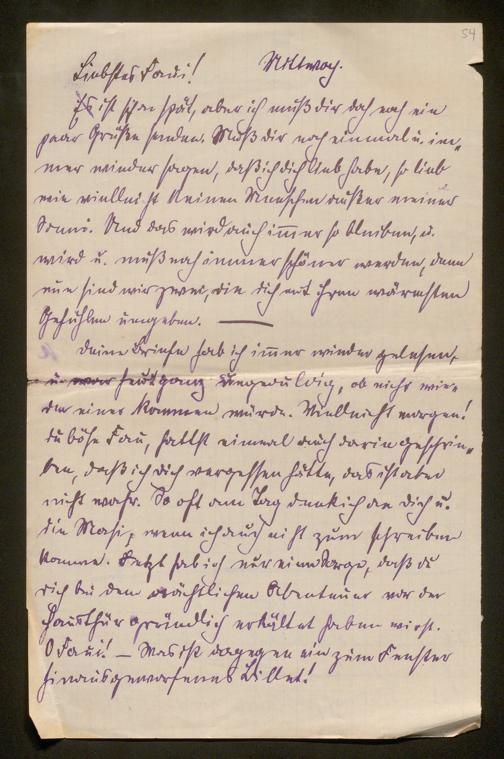 54
Liebstes Faui! Mittwoch.
Es ist schon spät, aber ich muß dir doch noch ein
paar Grüße senden. Muß dir noch einmal u. im„
mer wieder sagen, daß ich dich lieb habe, so lieb
wie vielleicht keinen Menschen außer meiner
Sonni. Und das wird auch im̅er so bleiben, u.
wird u. muß noch immer schöner werden, denn
nun sind wir zwei, die dich mit ihren wärmsten
Gefühlen umgeben. —
Deine Briefe hab ich im̅er wieder gelesen,
u. war heut ganz ungeduldig, ob nicht wie„
der einer kommen würde. Vielleicht morgen!
Du böse Fau, hattst einmal auch darin geschrie„
ben, daß ich dich vergessen hätte, das ist aber
nicht wahr. So oft am Tag denk ich an Dich u.
die Masi, wenn ich auch nicht zum schreiben
komme. Jetzt hab ich nur eine Sorge, daß du
dich bei dem nächtlichen Abenteuer vor der
Hausthür gründlich erkältet haben wirst.
O Faui! — Was ist dagegen ein zum Fenster
hinausgeworfenes Billet!